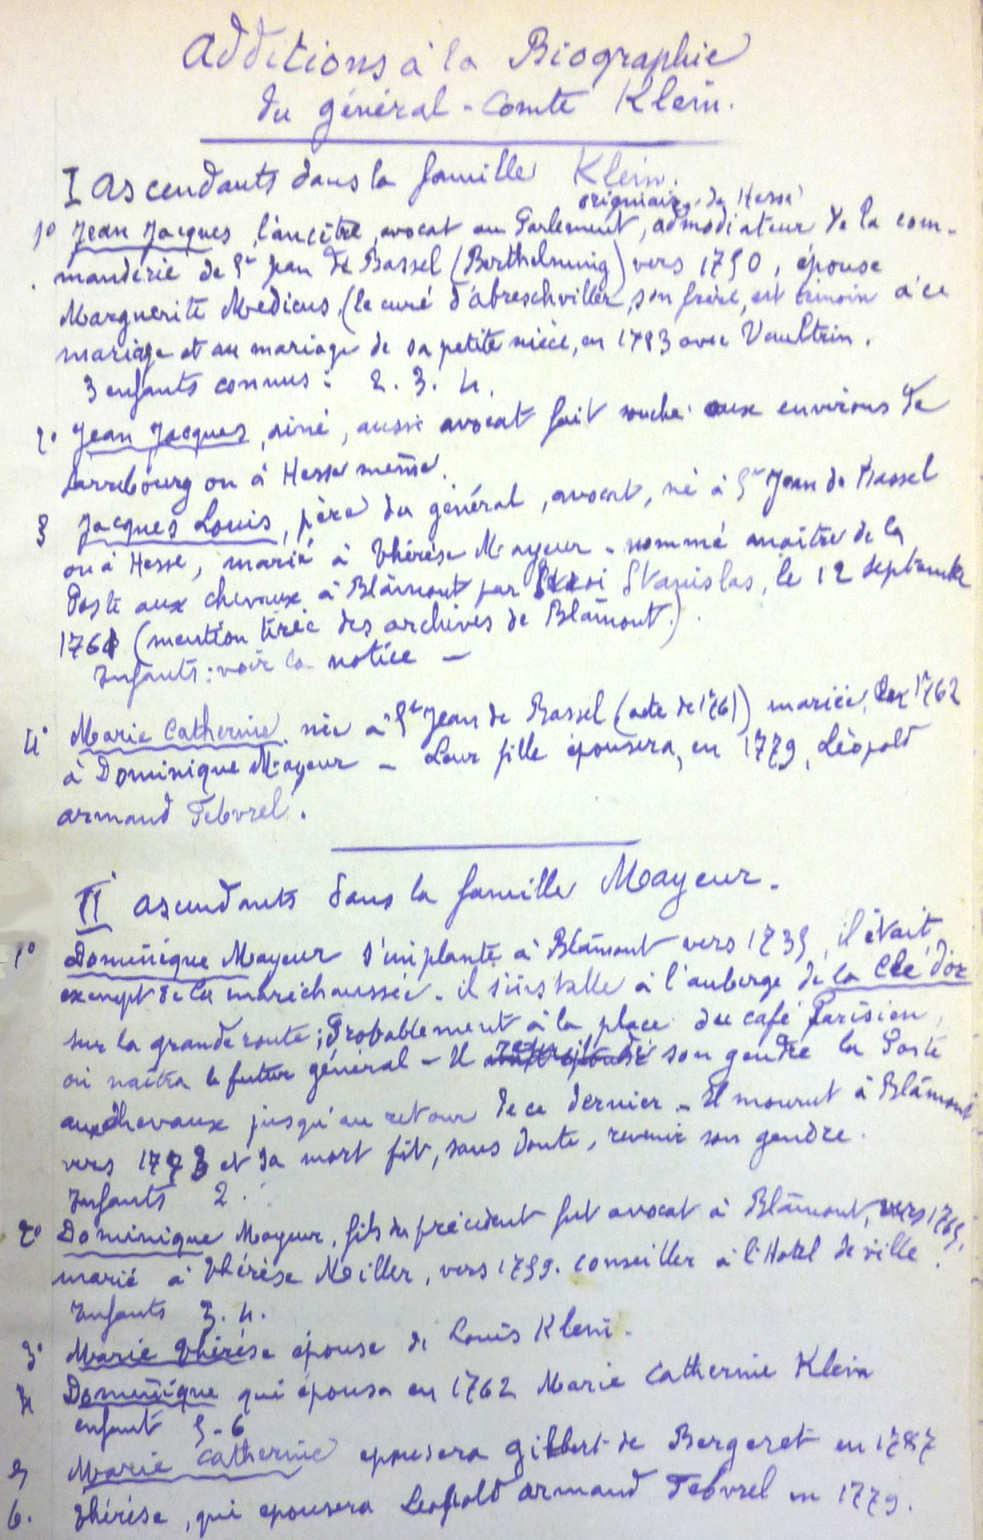 Additions à la Biographie
du général-Comte Klein.
I Ascendants dans la famille Klein.
originaire de Hesse
1° Jean Jacques, l'ancêtre, avocat au Parlement, admodiateur de la com-
manderie de St Jean de Bassel (Berthelming) vers 1750, épouse
Marguerite Medicus, (le curé d'abreschviller, son frère, est témoin à ce
mariage et au mariage de sa petite nièce, en 1783 avec Vaultrin.
3 enfants connus : 2. 3. 4.
2° Jean Jacques, ainé, aussi avocat fait souche aux environs de
Sarrebourg ou à Hesse même.
3 Jacques Louis, père du général, avocat, né à St Jean de Bassel
ou à Hesse, marié à Thérèse Mayeur - nommé maître de la
Poste aux chevaux à Blâmont par Stanislas, le 12 septembre
1761 (mention tirée des archives de Blâmont.)
Enfants : voir la notice -
4° Marie Catherine née à St Jean de Bassel (acte de 1761) mariée, en 1762
à Dominique Mayeur - Leur fille épousera, en 1779, Léopold
armand Febvrel.
II ascendants dans la famille Mayeur.
1° Dominique Mayeur s'implante à Blâmont vers 1735, il était
exempt de la maréchaussée. il s'installe à l'auberge de la Clé d'or
sur la grande route ; Probablement à la place du café Parisien,
où naîtra le futur général - Il son gendre la Poste
aux chevaux jusqu'au retour de ce dernier - Il mourut à Blâmont
vers 1773 et sa mort fit, sans doute, revenir son gendre.
Enfants 2.
2° Dominique Mayeur, fils du précédent fut avocat à Blâmont, vers 1765,
marié à Thérèse Noiller, vers 1739. conseiller à l'Hotel de ville.
Enfants 3. 4.
3° Marie Thérèse épouse de Louis Klein.
4 Dominique qui épousa en 1762 Marie Catherine Klein
enfant 5-6
5 Marie Catherine epousera Gilbert de Bergeret en 1787
6. Thérèse, qui epousera Leopold armand Febvrel en 1779.